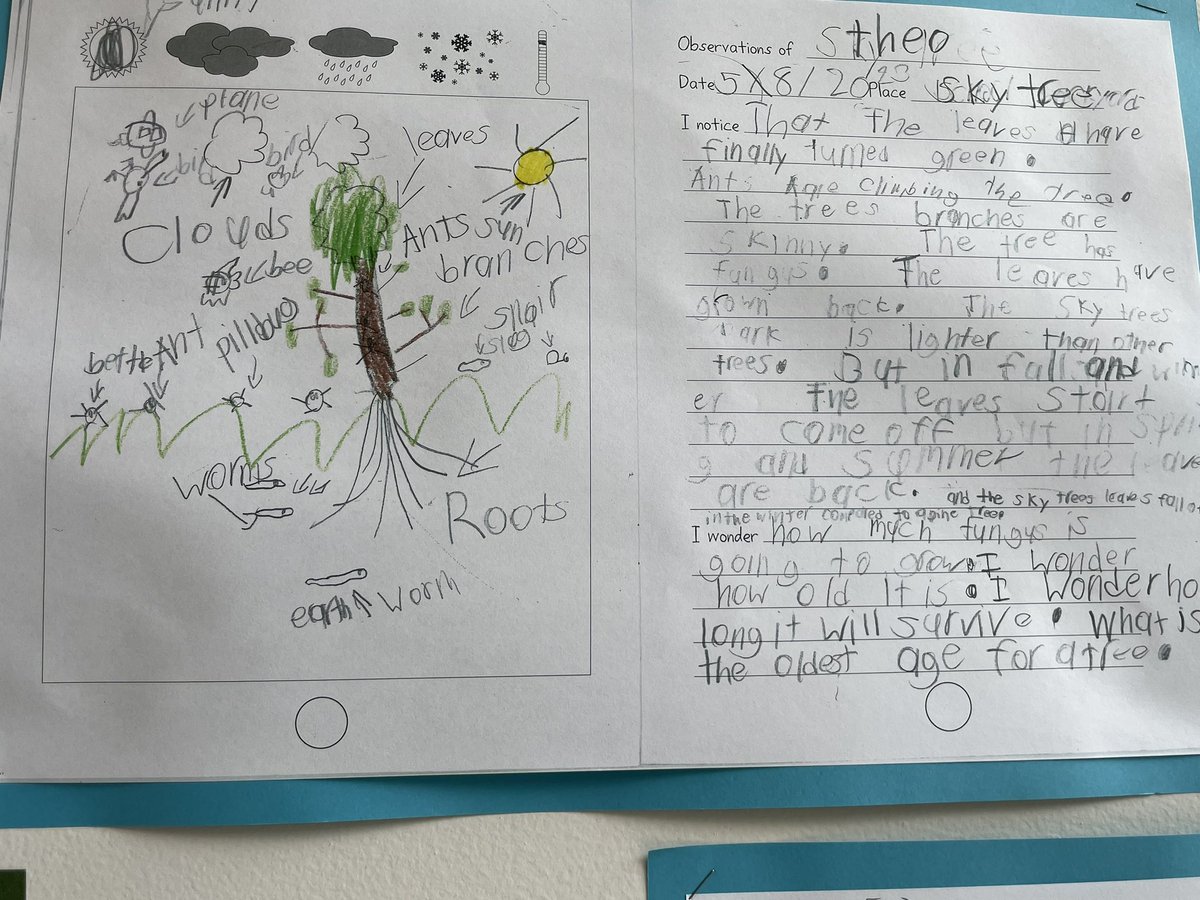 plane
bird
bird
leaves
Clouds
Ants
sun
branches
bee
Ant
pillbug
slug
worms
Roots
earth
worm
Observations of
Date 5/8/2023 Place sky tree
I notice That the leaves have
finally turned green.
Ants are climbing the tree.
The trees branches are
skinny. The tree has
fungus. The leaves have
grown back. The sky trees
bark is lighter than other
trees. But in fall and
er the leaves start
to come off but in sprin
g and summer the leave
are back. and the sky trees leaves fall of
in the winter
I wonder how much fungus is
going to grow. I wonder
how old It is. I Wonder ho
long it will survive. What is
the oldest age for a tree.